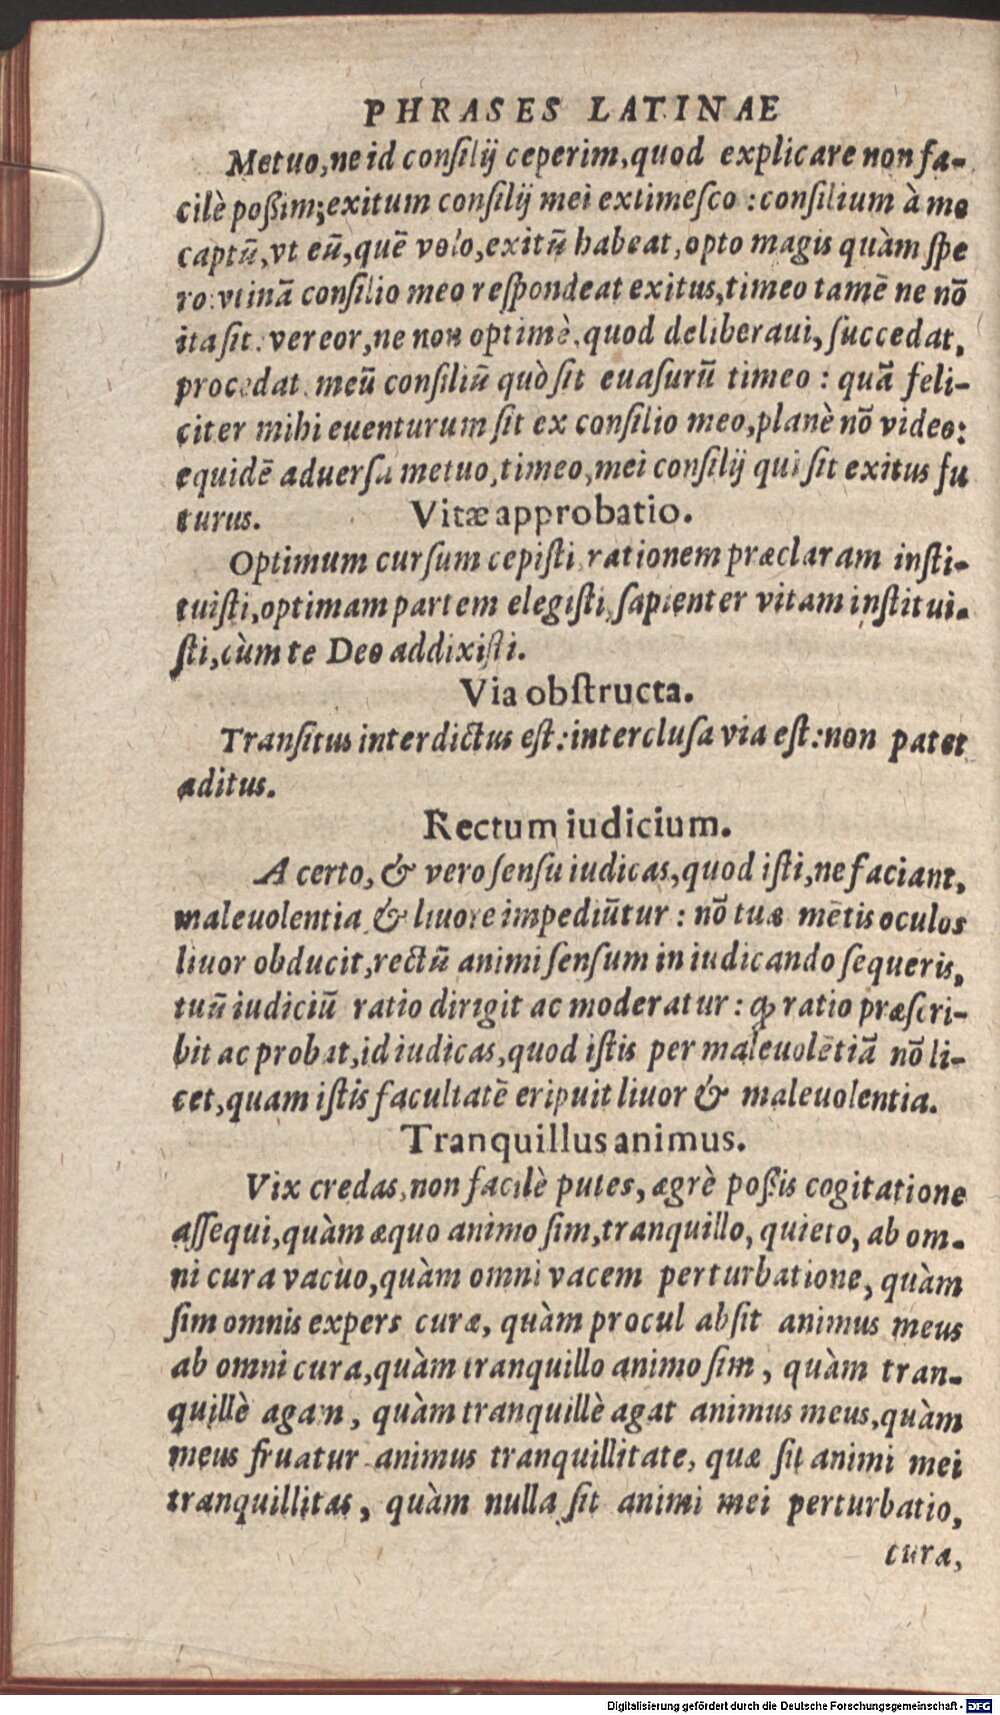 PHRASES LATINAE
Metuo, ne id consilij ceperim, quod explicare non fa-
cilè poßim; exitum consilij mei extimesco: consilium à me
captũ, vt eũ, quẽ volo, exitũ habeat, opto magis quàm spe
ro: vtinã consilio meo respondeat exitus, timeo tamẽ ne nõ
ita sit: vereor, ne non optimè, quod deliberaui, succedat,
procedat: meũ consiliũ quò sit euasurũ timeo: quã feli-
citer mihi euenturum sit ex consilio meo, planè nõ video:
equidẽ aduersa metuo, timeo, mei consilij qui sit exitus fu
turus.
Vitæ approbatio.
Optimum cursum cepisti, rationem præclaram insti-
tuisti, optimam partem elegisti, sapienter vitam institui-
sti, cùm te Deo addixisti.
Via obstructa.
Transitus interdictus est: interclusa via est: non patet
aditus.
Rectum iudicium.
A certo, & vero sensu iudicas, quod isti, ne faciant,
maleuolentia & liuore impediũtur: nõ tuæ mẽtis oculos
liuor obducit, rectũ animi sensum in iudicando sequeris,
tuũ iudiciũ ratio dirigit ac moderatur: qꝫ ratio præscri-
bit ac probat, id iudicas, quod istis per maleuolẽtiã nõ li-
cet, quam istis facultatẽ eripuit liuor & maleuolentia.
Tranquillus animus.
Vix credas, non facilè putes, ægrè poßis cogitatione
assequi, quàm æquo animo sim, tranquillo, quieto, ab om-
ni cura vacuo, quàm omni vacem perturbatione, quàm
sim omnis expers curæ, quàm procul absit animus meus
ab omni cura, quàm tranquillo animo sim, quàm tran-
quillè agam, quàm tranquillè agat animus meus, quàm
meus fruatur animus tranquillitate, quæ sit animi mei
tranquillitas, quàm nulla sit animi mei perturbatio,
cura,
Digitalisierung gefördert durch die Deutsche Forschungsgemeinschaft - DFG